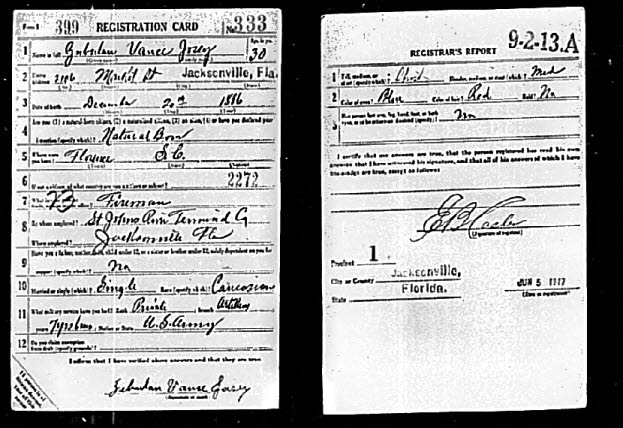 Form 1 399 REGISTRATION CARD No. 333
1 Name in full Zebulan Vance Age, in yrs. 30
2 Home address 2106 Market St Jacksonville, Fla.
3 Date of birth December 20th 1886
4 Are you (1) a natural-born citizen, (2) a naturalized citizen, (3) an alien, (4) or have you declared your
intention (specify which)? Natural Born
5 Where were you born? S.C.
6 If not a citizen, of what country are you a citizen or subject? 2272
7 What Fireman
8 By whom employed? St Johns River Terminal
Where employed? Jacksonville Fla
9 Have you a father, mother, wife, child under 12, or a sister or brother under 12, solely dependent on you for
support (specify which)? No
10 Married or single (which)? Single Race (specify which)? Caucasian
11 What military service have you had? Rank Private branch Artillery
years Nation or State U.S. Army
12 Do you claim exemption from draft (specify grounds)?
I affirm that I have verified above answers and that they are true
Zebulan Vance
(Signature or mark)
9-2-13.A
REGISTRAR'S REPORT
1 Tall, medium, or short (specify which)? Slender, medium, or stout (which)? Med
2 Color of eyes? Blue Color of hair? Red Bald? No
3 Has person lost arm, leg, hand, foot, or both eyes, or is he otherwise disabled (specify)? No
I certify that my answers are true, that the person registered has read his own
answers, that I have witnessed his signature, and that all of his answers of which I have
knowledge are true, except as follows:
(Signature of registrar)
Precinct 1
City or County Jacksonville,
State Florida.
JUN 5 1917
(Date of registration)